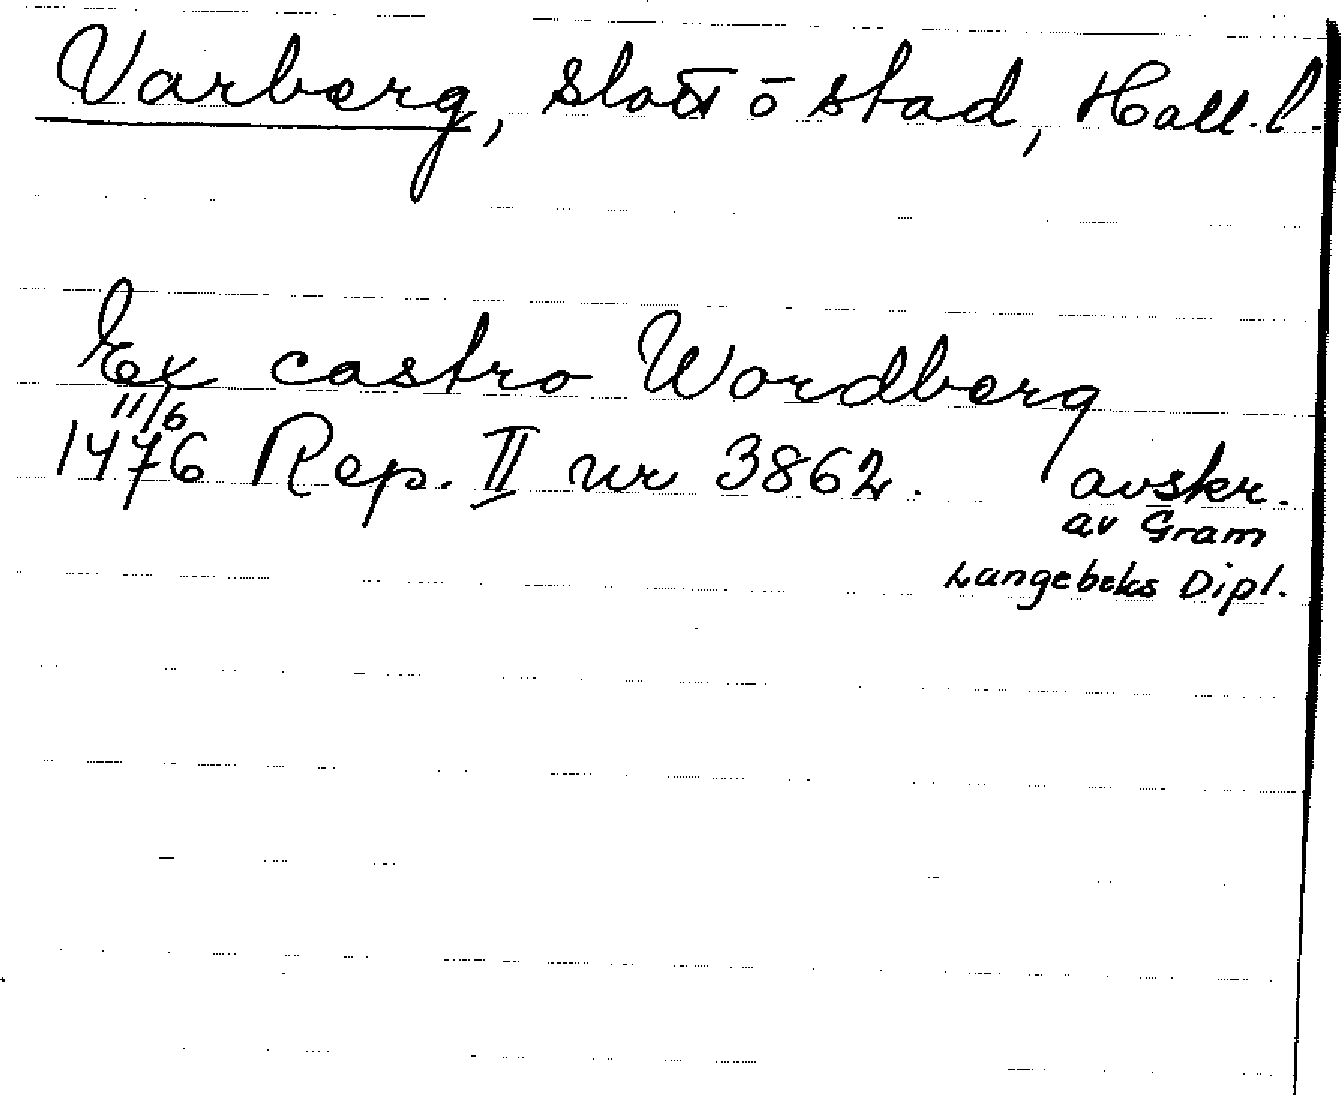 Varberg, slott o stad, Hall. l.
Ex castro Wordberg
11/6
1476 Rep. II nr 3862. avskr.
av Gram
Langebeks Dipl.